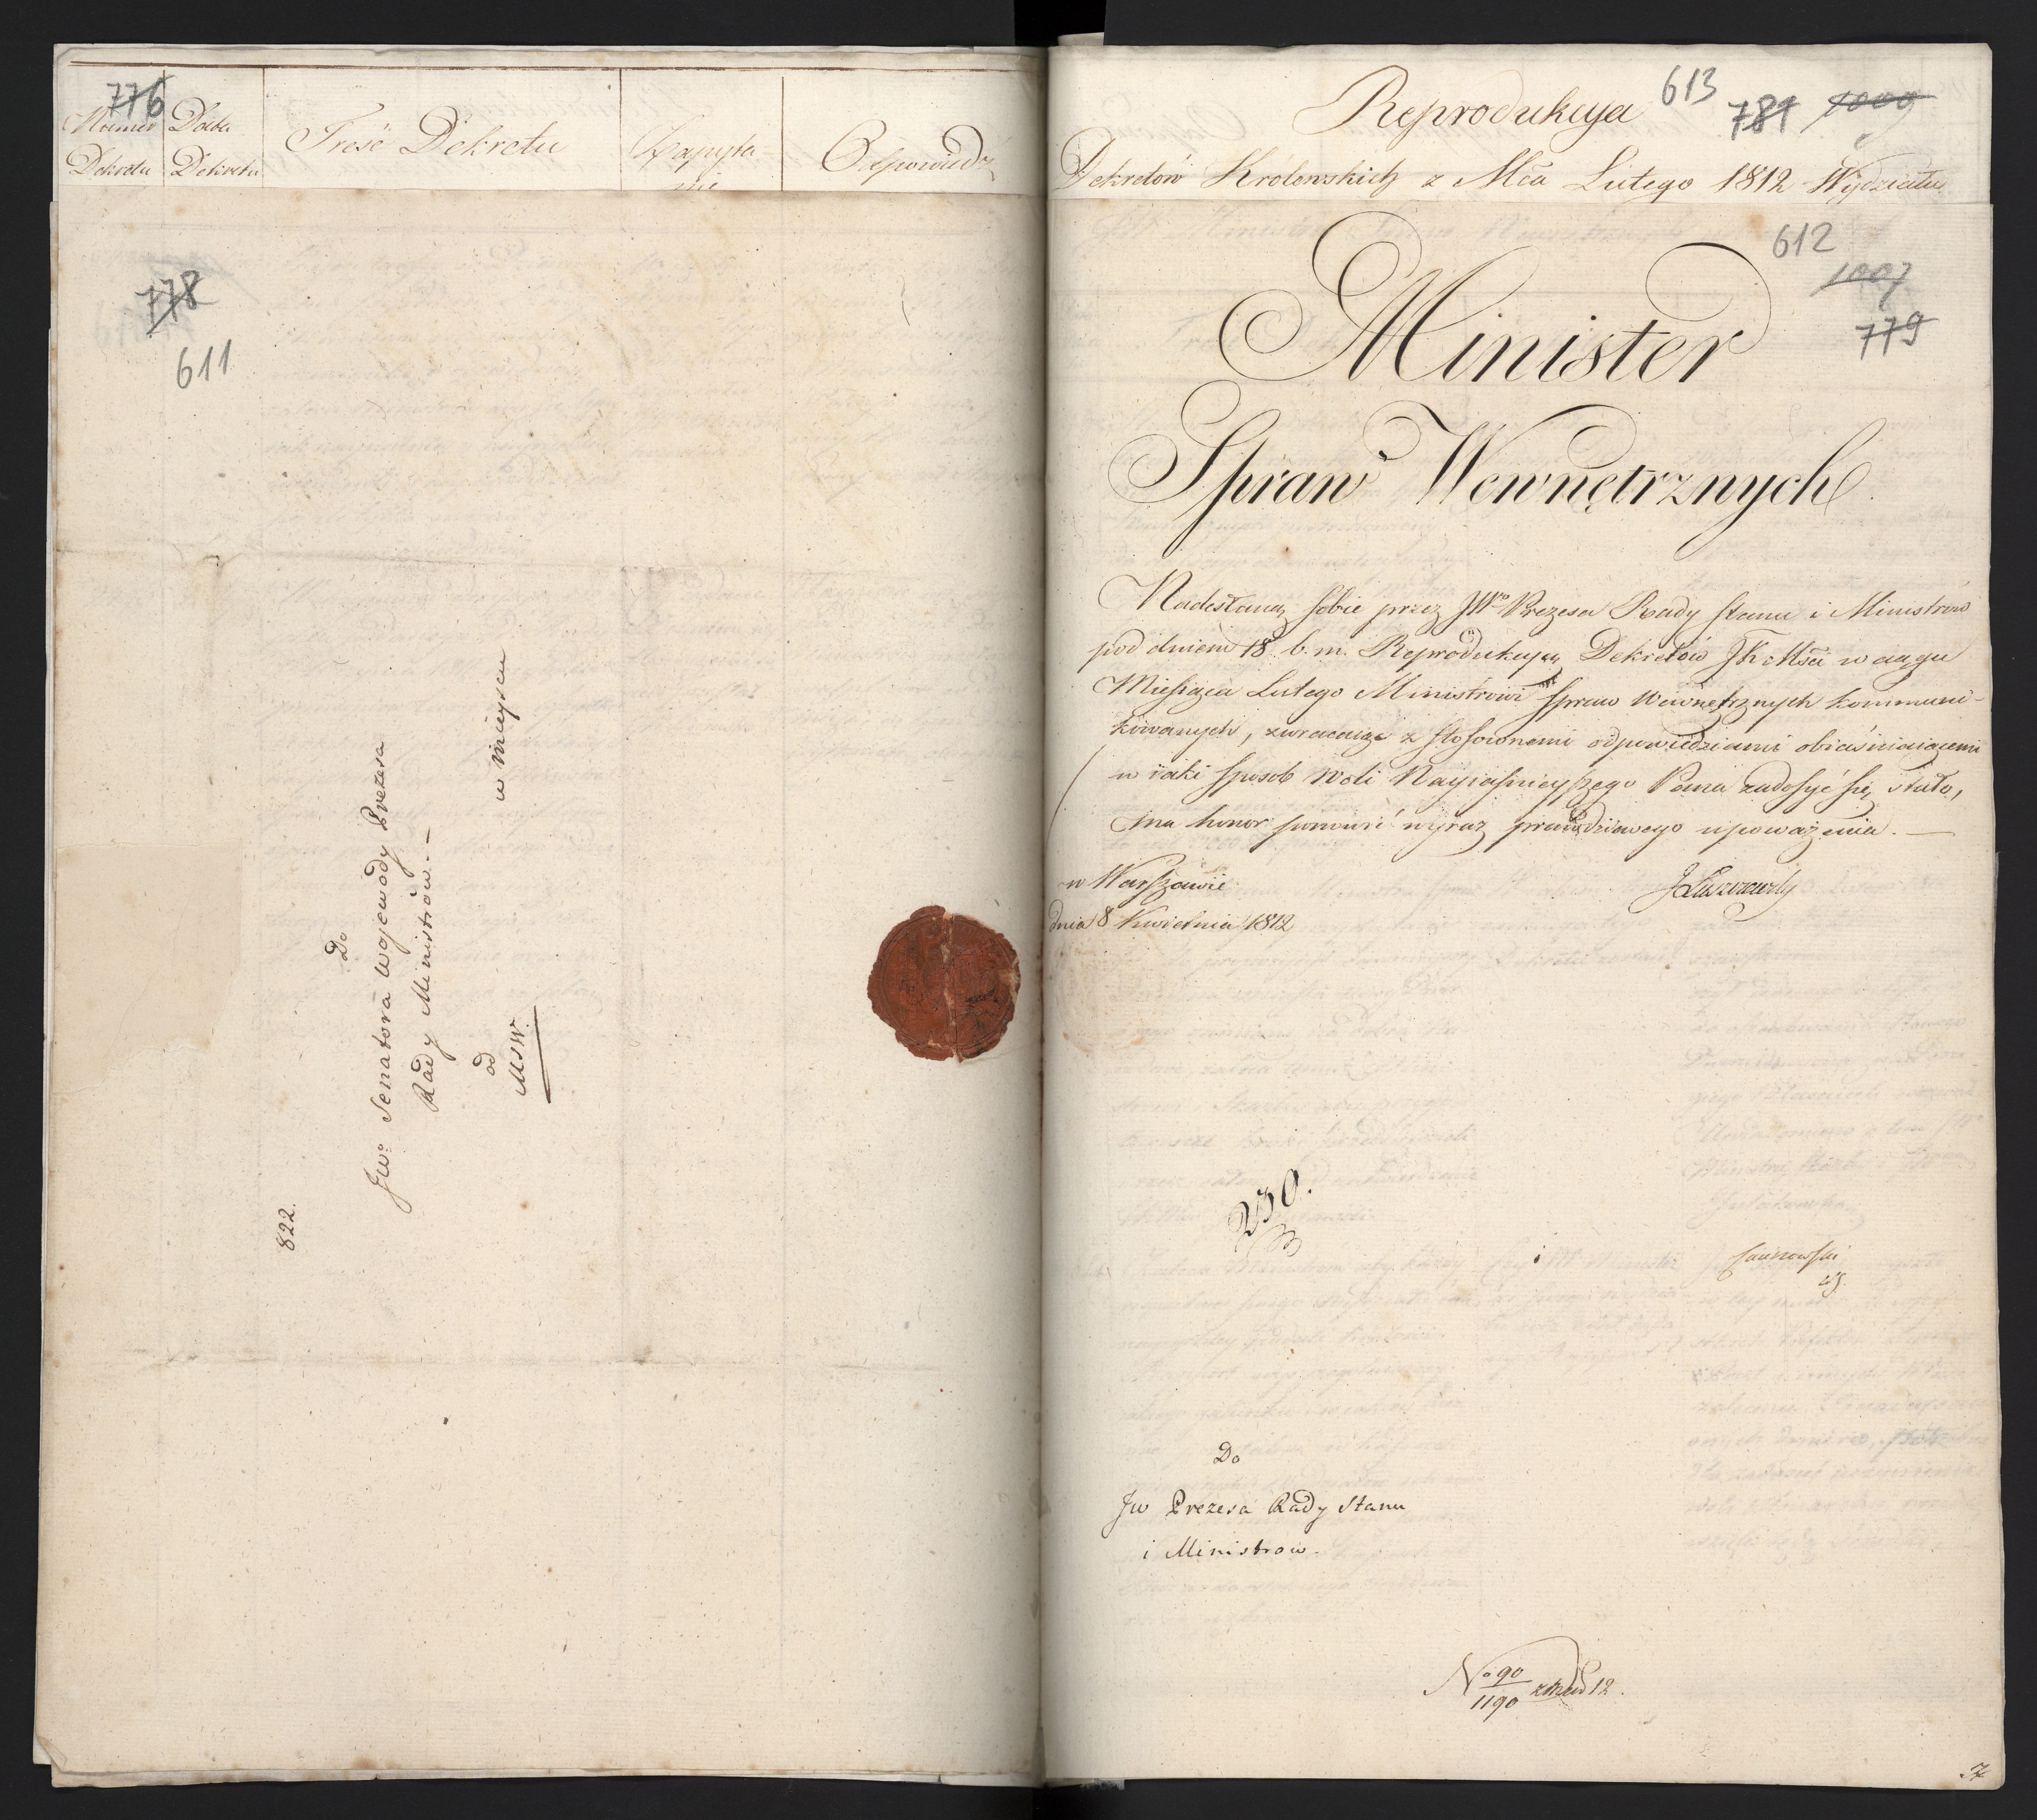 776
Numer Dekretu
Data Dekretu
Treść Dekretu
Zapytanie
Odpowiedź
778
611
822.
Do
Jw: Senatora Wojewody Prezesa
Rady Ministrów. —
w mieyscu
od
MSW.
Reprodukcya
613
781
1009
Dekretów Królewskich z Mca Lutego 1812 Wydziału
612
1007
779
Minister
Spraw Wewnętrznych
Nadesłaną sobie przez JWo Prezesa Rady Stanu i Ministrów
pod dniem 18 b. m. Reprodukcyą Dekretów JKMści w ciągu
Miesiąca Lutego Ministrowi Spraw Wewnętrznych kommuni-
kowanych, zwracaiąc z stosownemi odpowiedziami obiaśniaiącemi
w iaki sposob Woli Nayiaśnieyszego Pana zadosyć się stało,
ma honor ponowić wyraz prawdziwego upoważenia. —
w Warszawie
dnia 8 Kwietnia 1812
J Łuszczewski
230.
Do
Jw Prezesa Rady Stanu
i Ministrow.
No 90
1190
12.